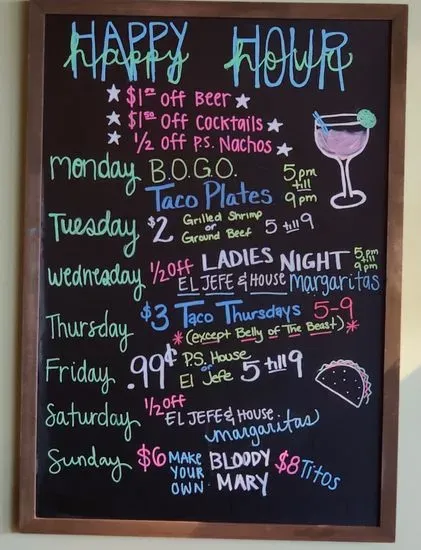 HAPPY HOUR
happy hour
$1.00 Off Beer
$1.50 Off Cocktails
1/2 Off P.S. Nachos
Monday B.O.G.O. 5pm till 9pm
Taco Plates
Tuesday $2 Grilled Shrimp or Ground Beef 5 till 9
Wednesday 1/2 Off LADIES NIGHT 5pm till 9pm
EL JEFE & HOUSE Margaritas
Thursday $3 Taco Thursdays 5-9
*(except Belly of The Beast)*
Friday .99¢ P.S. House or El Jefe 5 till 9
Saturday 1/2 Off EL JEFE & HOUSE
margaritas
Sunday $6 MAKE YOUR OWN BLOODY MARY $8 Titos